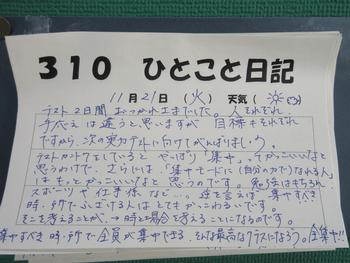 310 ひとこと日記
11月21日(火) 天気()
テスト2日間 おつかれさまでした。人それぞれ
手応えは違うと思いますが 目標もそれぞれ
ですから、次の実力テストに向けてがんばりましょう。
テストカントクをしていると やっぱり「集中」ってかっこいいなと
思うわけで、さらには、「集中モード」に(自分の力で)なれる人
はもっとかっこいいなと 思うのです。勉強はもちろん、
スポーツや 仕事 様など…。逆を言えば 集中すべき
時・所でふざける人は とてもかっこわるいです。
そこを考えることが、→ 時と場合を考えることになるのです。
集中すべき 時・所で全員が集中できる、そんな最高なクラスになろう。全集中!!